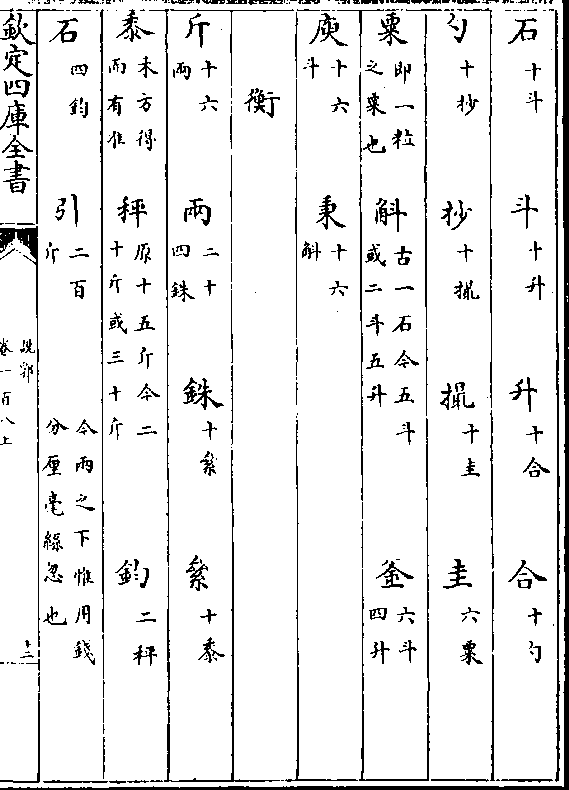 石十斗　斗十升　升十合　合十勺
勺十抄　抄十撮　撮十圭　圭六粟
粟即一粒之粟也　斛古一石今五斗或二斗五升　釜六斗四升
庾十六斗　秉十六斛
衡
斤十六兩　兩二十四銖　銖十絫　絫十黍
黍未方得而有准　秤原十五斤今二十斤或三十斤　鈞二秤
石四鈞　引二百斤　今兩之下惟用錢分厘毫絲忽也
欽定四庫全書
說郛
卷一百八上
十二